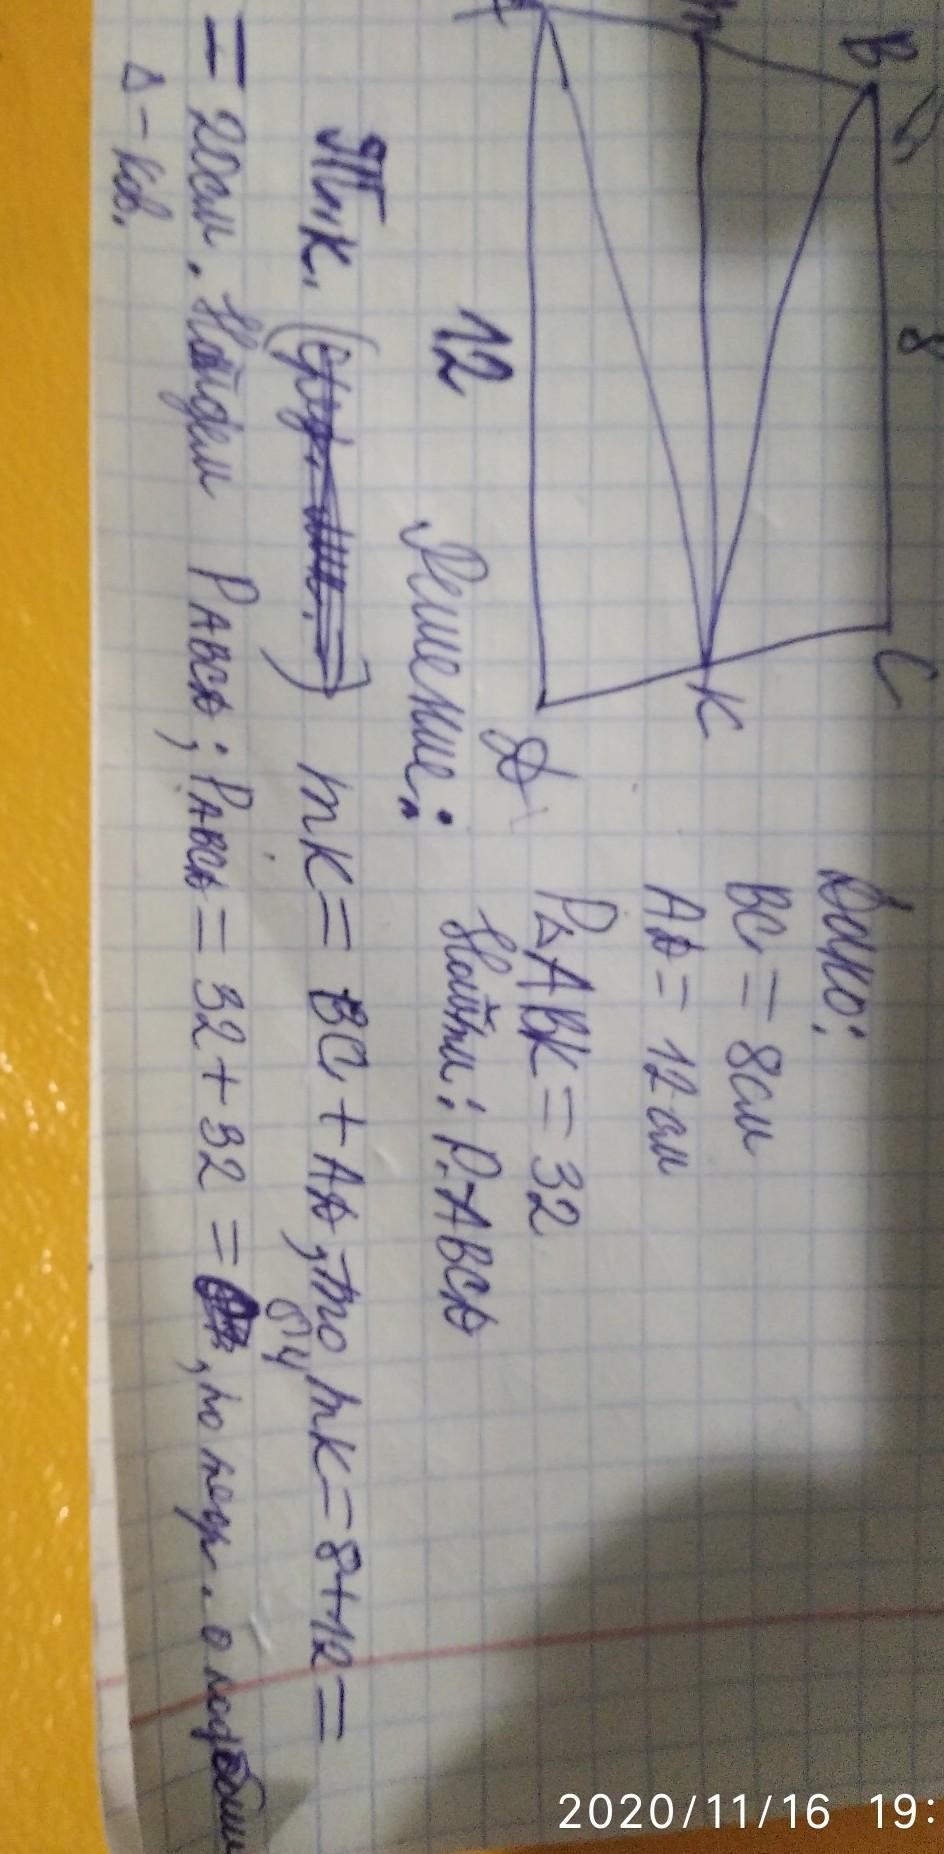 B
m
A
8
C
K
12
D
Дано:
BC = 8см
AD = 12 см
P△ABK = 32
Найти: P.ABCD
Решение:
Т.к. mK = BC + AD, то mK = 8 + 12 =
= 20см. Найдем PABCD; PABCD = 32 + 32 = 64, по теор. о подобии
△-ков.
2020/11/16 19: